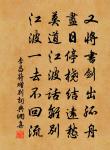 又將書劍出孤舟
盡日停橈結遠愁
莫道江波話離別
江波一去不回流
李昌符贈別詩詞網王